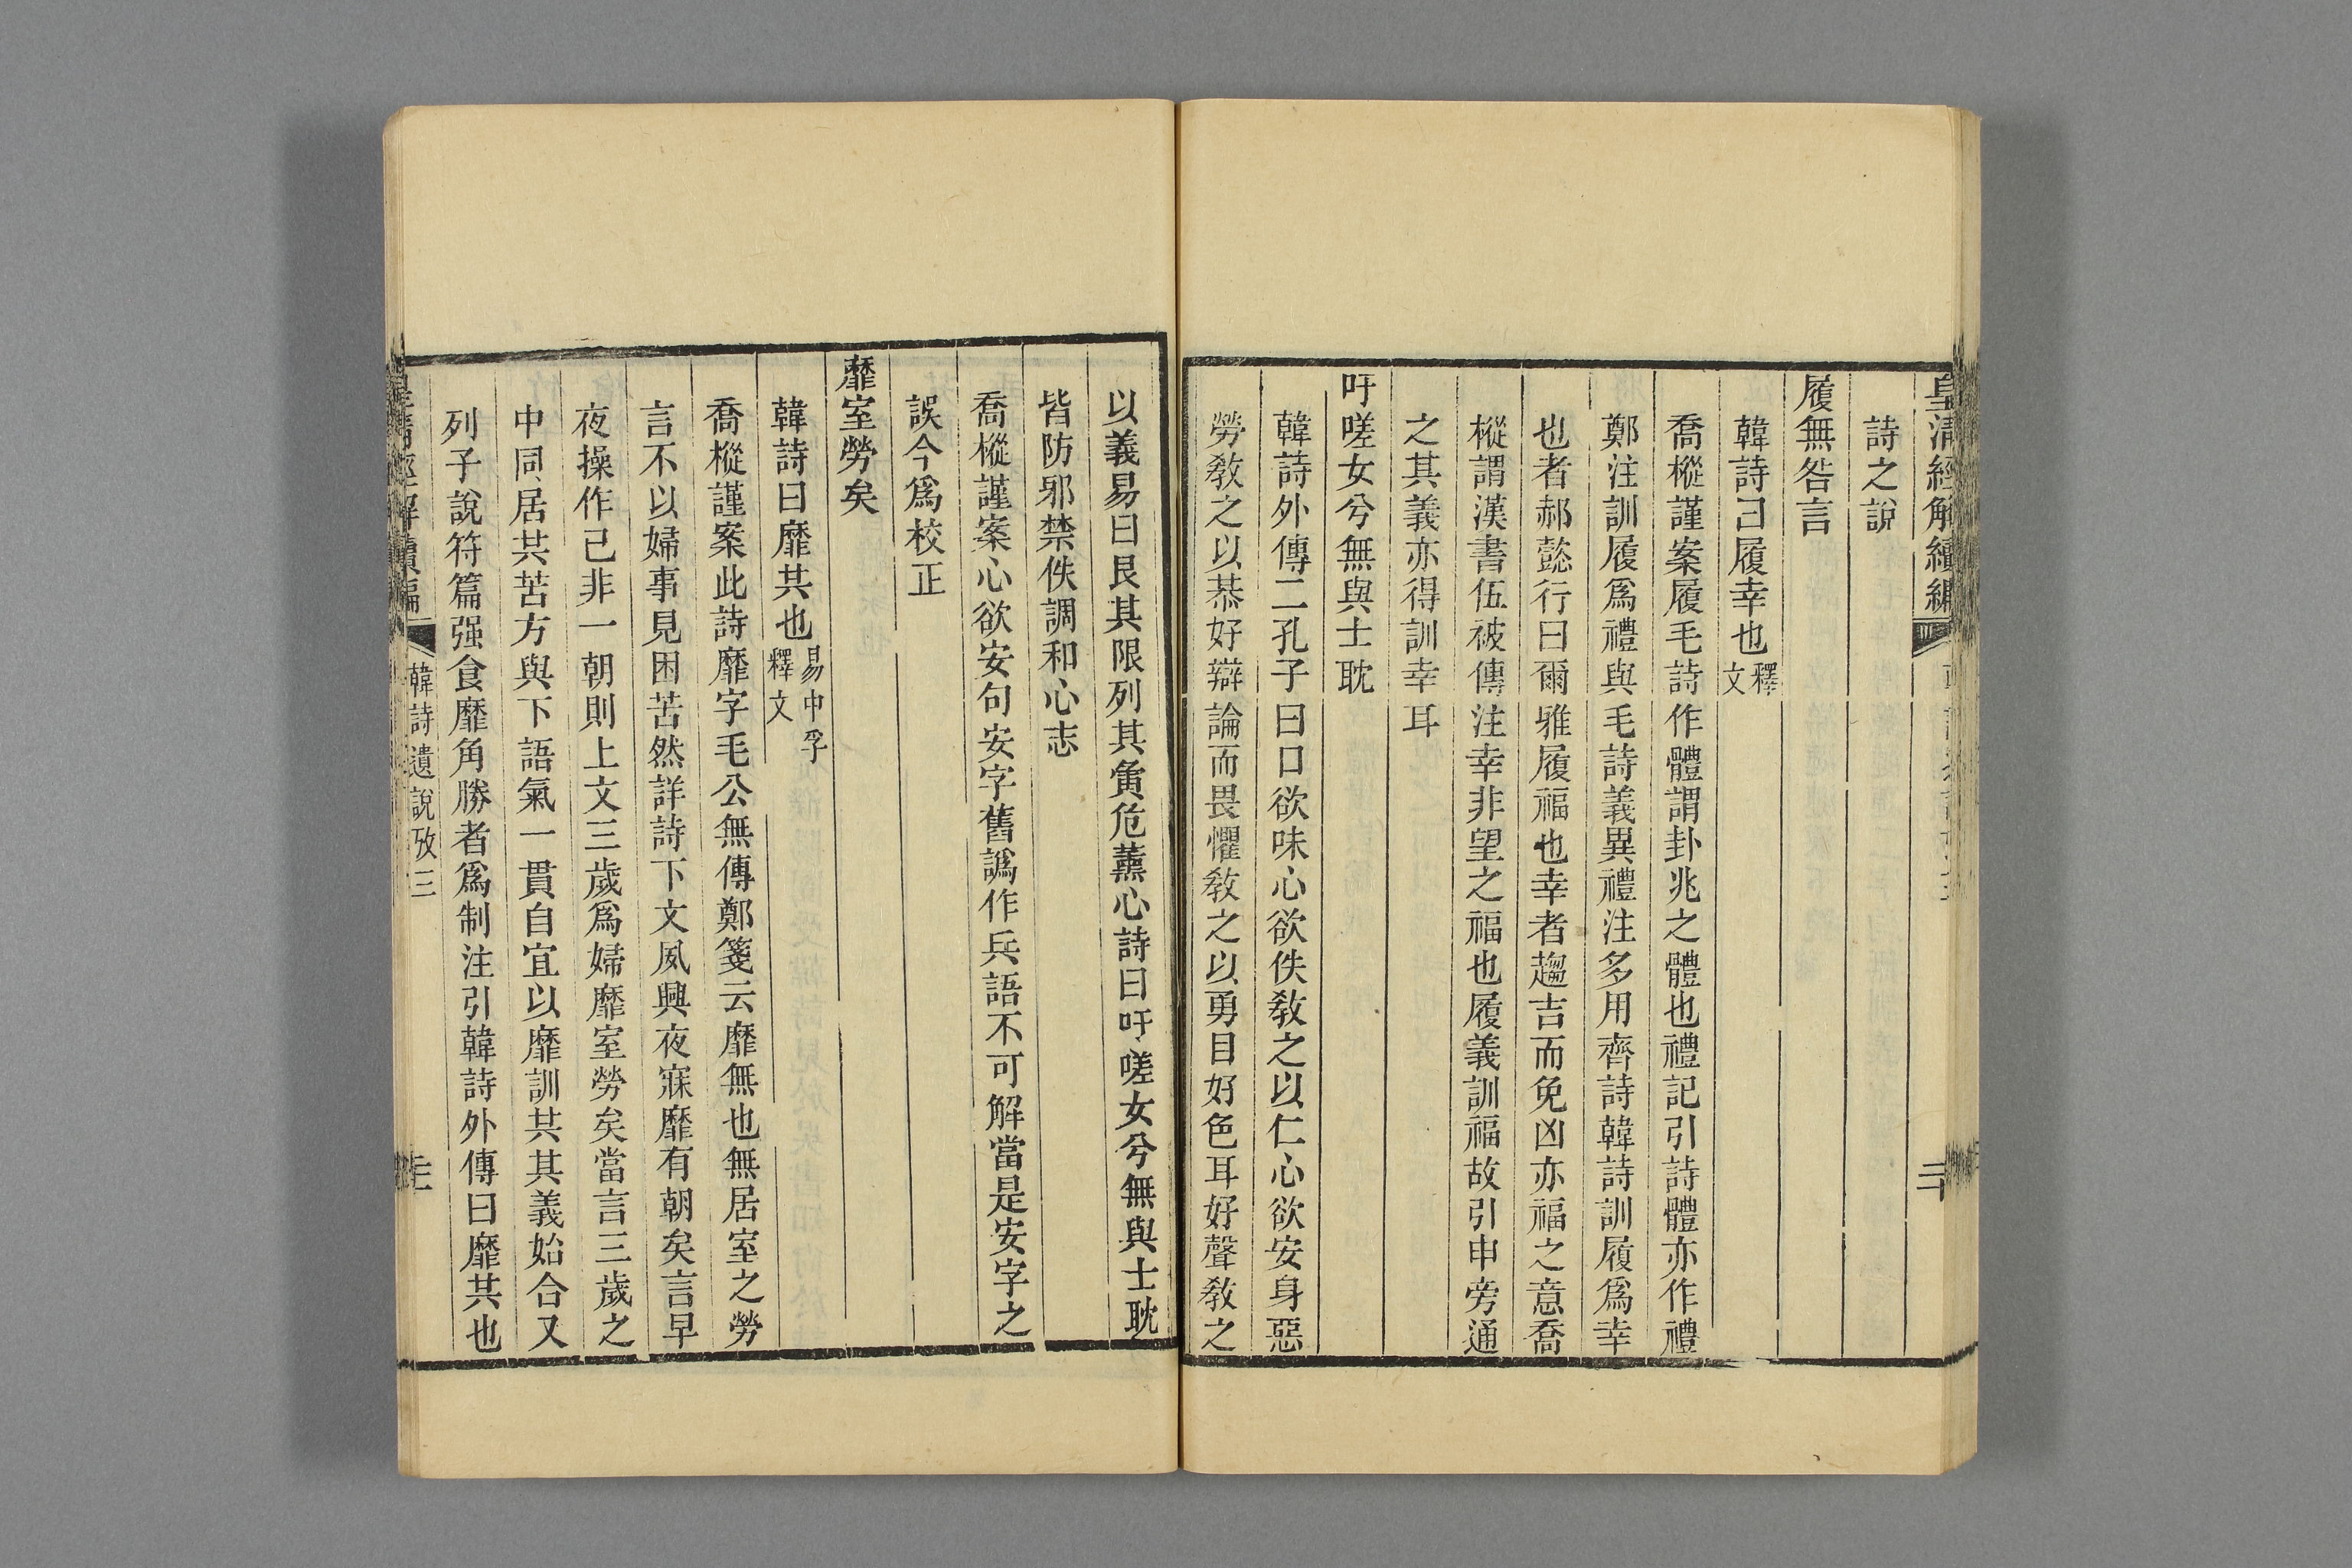 皇清經解續編
詩之說
履無咎言
韓詩曰履幸也釋文
喬樅謹案履毛詩作體謂卦兆之體也禮記引詩體亦作禮
鄭注訓履爲禮與毛詩義異禮注多用齊詩韓詩訓履爲幸
也者郝懿行曰爾雅履福也幸者趨吉而免凶亦福之意喬
樅謂漢書伍被傳注幸非望之福也履義訓福故引申旁通
之其義亦得訓幸耳
吁嗟女兮無與士耽
韓詩外傳二孔子曰口欲味心欲佚敎之以仁心欲安身惡
勞敎之以恭好辯論而畏懼敎之以勇目好色耳好聲敎之
以義易曰艮其限列其夤危薰心詩曰吁嗟女兮無與士耽
皆防邪禁佚調和心志
喬樅謹案心欲安句安字舊譌作兵語不可解當是安字之
誤今爲校正
靡室勞矣
韓詩曰靡共也易中孚釋文
喬樅謹案此詩靡字毛公無傳鄭箋云靡無也無居室之勞
言不以婦事見困苦然詳詩下文夙興夜寐靡有朝矣言早
夜操作己非一朝則上文三歲爲婦靡室勞矣當言三歲之
中同居共苦方與下語氣一貫自宜以靡訓共其義始合又
列子說符篇强食靡角勝者爲制注引韓詩外傳曰靡共也
皇清經解續編
韓詩遺說攷三